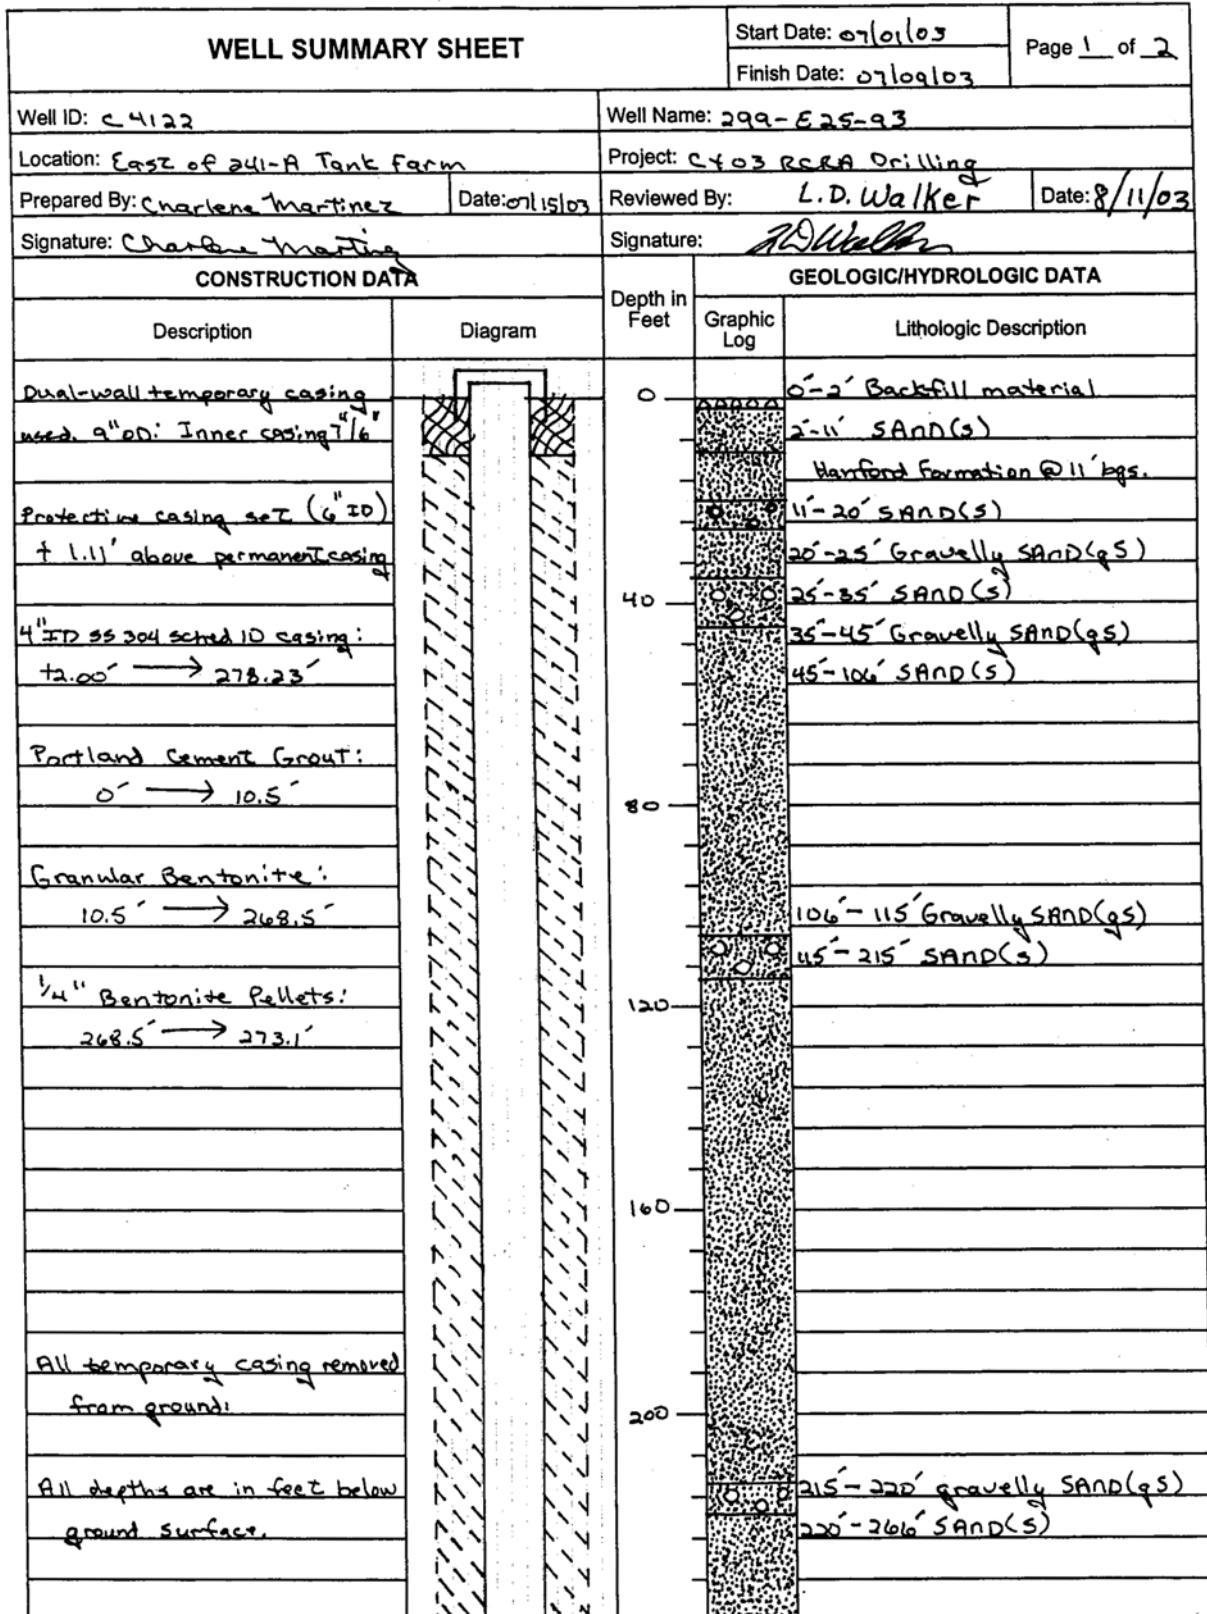 WELL SUMMARY SHEET
Start Date: 07/01/03
Finish Date: 07/09/03
Page 1 of 2
Well ID: C4122
Well Name: 299-E25-93
Location: East of 241-A Tank Farm
Project: CY03 RCRA Drilling
Prepared By: Charlene Martinez
Date: 07/15/03
Reviewed By: L.D. Walker
Date: 8/11/03
Signature: Charlene Martinez
Signature: LD Walker
CONSTRUCTION DATA
Depth in Feet
GEOLOGIC/HYDROLOGIC DATA
Description
Diagram
Graphic Log
Lithologic Description
Dual-wall temporary casing
used. 9" OD: Inner casing 7"/6"
Protective casing set (6" ID)
+ 1.11' above permanent casing
4" ID SS 304 sched 10 casing:
+2.00' → 278.23'
Portland Cement Grout:
0' → 10.5'
Granular Bentonite:
10.5' → 268.5'
1/4" Bentonite Pellets:
268.5' → 273.1'
All temporary casing removed
from ground.
All depths are in feet below
ground surface.
0
40
80
120
160
200
0'-2' Backfill material
2'-11' SAND(s)
Hanford Formation @ 11' bgs.
11'-20' SAND(s)
20'-25' Gravelly SAND(gS)
25'-35' SAND(s)
35'-45' Gravelly SAND(gS)
45'-106' SAND(s)
106'-115' Gravelly SAND(gS)
115'-215' SAND(s)
215'-220' gravelly SAND(gS)
220'-266' SAND(s)